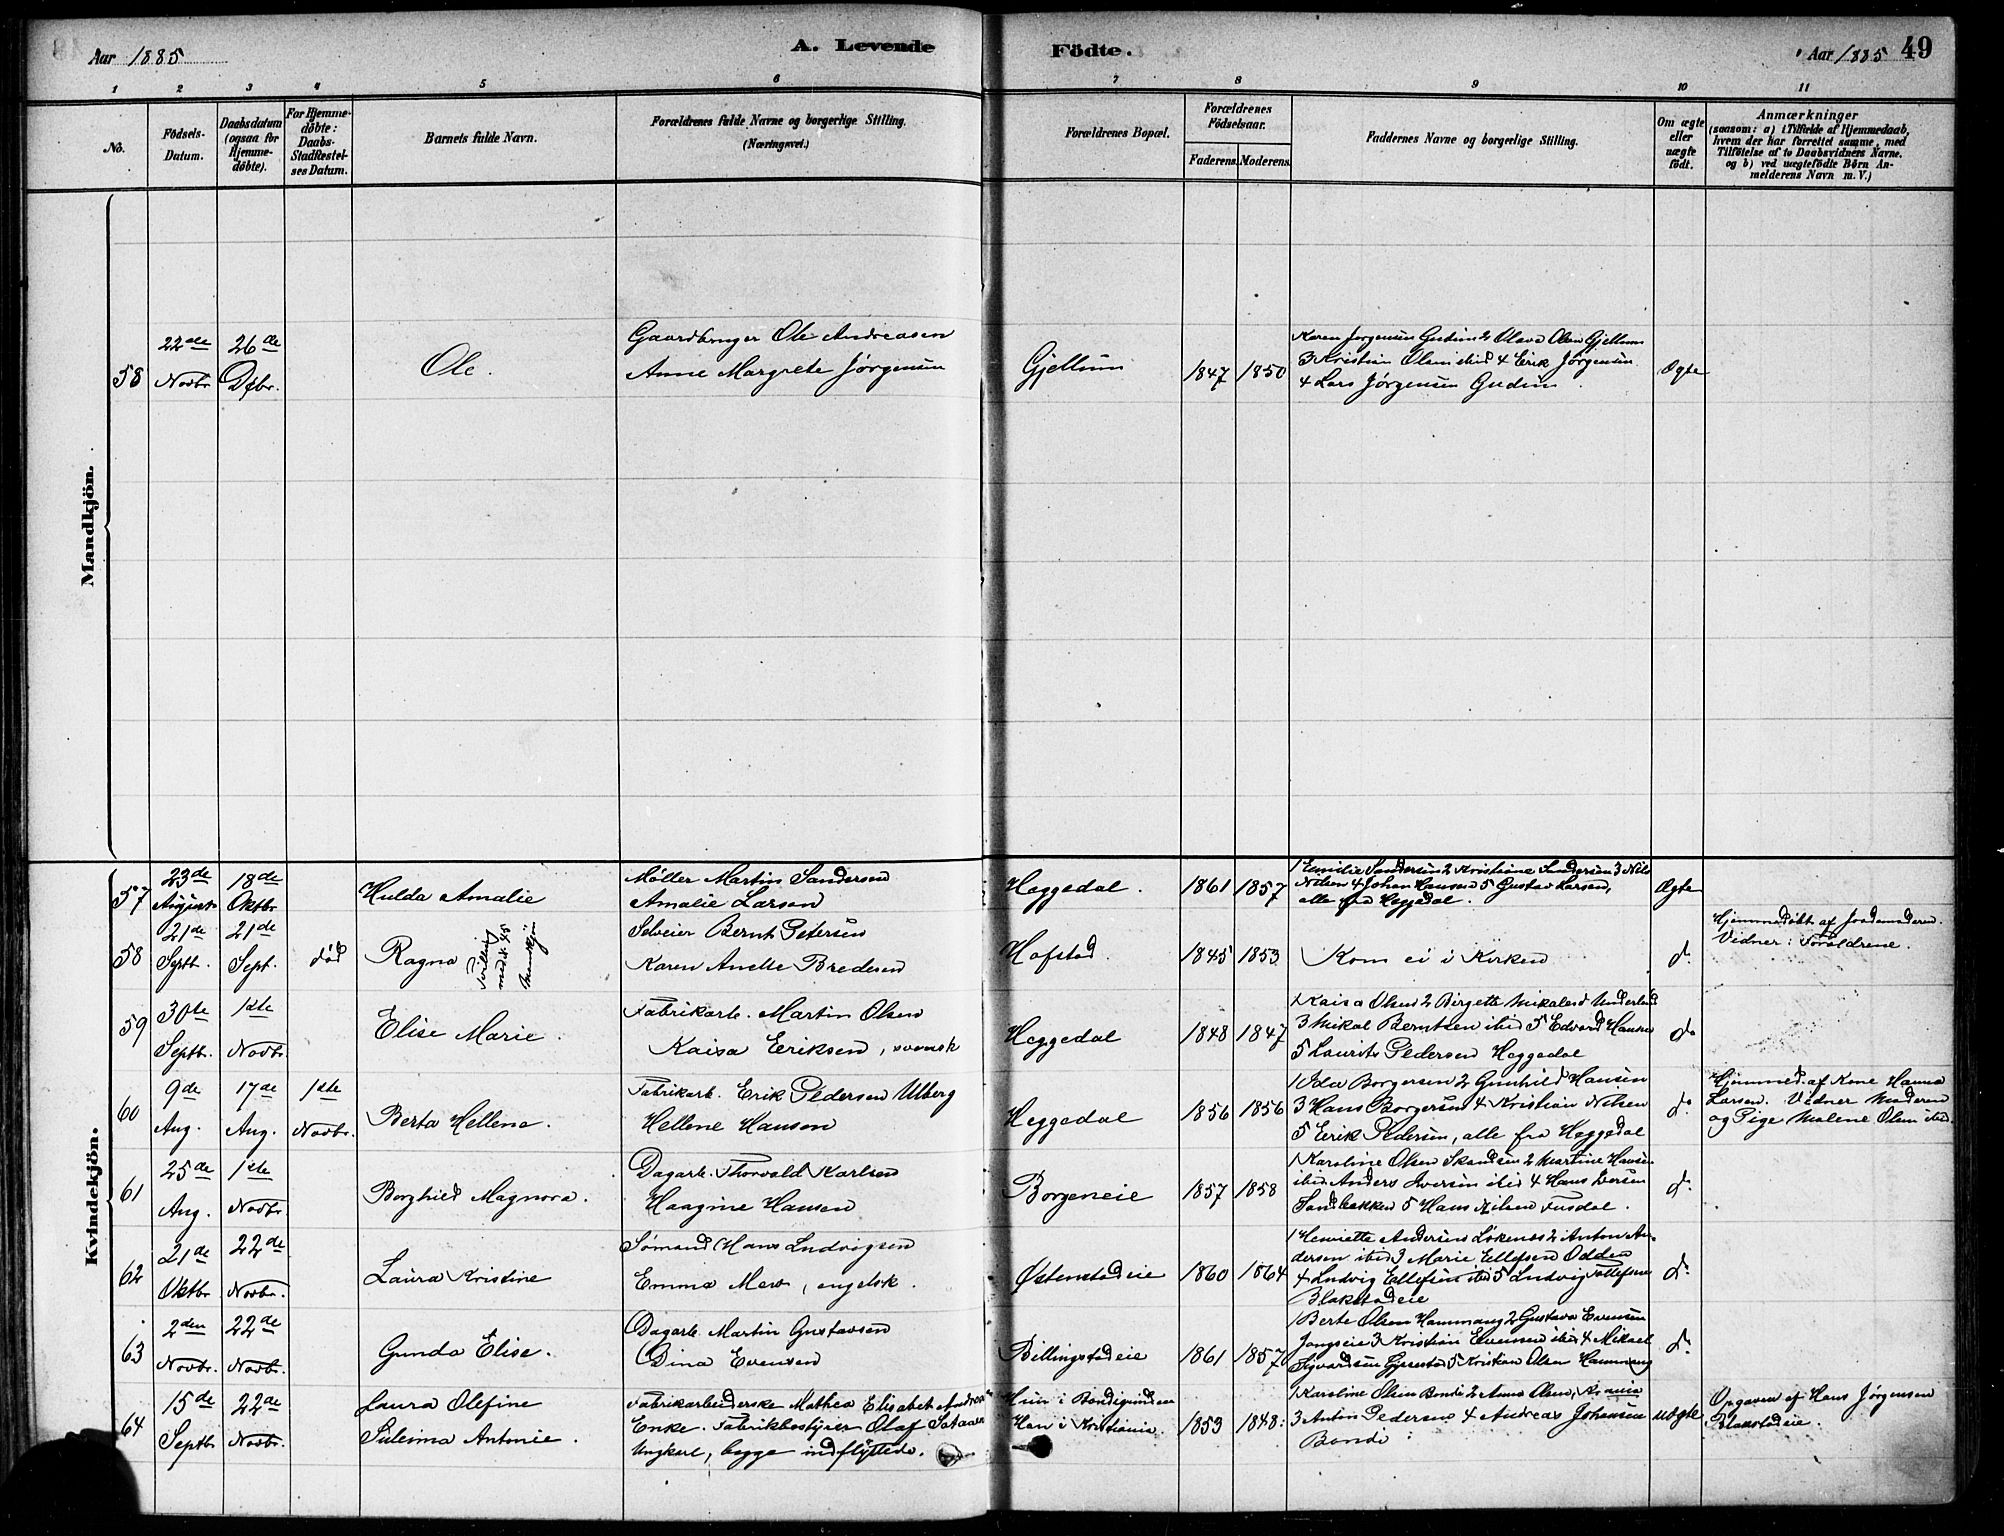 Aar 1885
A. Levende
Födte.
Aar 1885
49
1 2 3 4 5 6 7 8 9 10 11
No.
Födsels-
Datum.
Daabsdatum
(ogsaa for
Hjemme-
döbte).
For Hjemme-
döbte:
Daabs-
Stadfæstel-
ses Datum.
Barnets fulde Navn.
Forældrenes fulde Navne og borgerlige Stilling.
(Næringsvei.)
Forældrenes Bopæl.
Forældrenes
Födselsaar.
Faderens. Moderens.
Faddernes Navne og borgerlige Stilling.
Om ægte
eller
uægte
födt.
Anmærkninger
(saasom: a) i Tilfælde af Hjemmedaab,
hvem der har forrettet samme, med
Tilföielse af to Daabsvidners Navne.
og b) ved uægtefödte Börn An-
melderens Navn m. V.)
Mandkjön.
58
22de
Novbr.
26de
Dcbr.
Ole.
Gaardbruger Ole Andreasen
Anne Margrete Jørgensen
Gjellum
1847
1850
Karen Jørgensen Gudim 2 Olava Olsen Gjellum
3 Kristian Olsen ibid 4 Erik Jørgensen
4 Lars Jørgensen Gudim.
Ægte
Kvindekjön.
57
23de
August
18de
Oktbr.
Hulda Amalie
Møller Martin Sandersen
Amalie Larsen
Heggedal.
1861
1857
1 Emilie Sandersen 2 Kristiane Sandersen 3 Nils
Nilsen 4 Johan Hansen 5 Gustav Larsen,
alle fra Heggedal.
Ægte
58
21de
Septb.
21de
Sept.
død
Ragna
Tvilling
med No. 45
Mandkjøn
Selveier Bernt Petersen
Karen Anette Bredesen
Hofstad.
1845
1853
Kom ei i Kirken
do.
Hjemmedøbt af Jordemoderen.
Vidner: Forældrene.
59
30te
Septbr.
1ste
Novbr.
Elise Marie.
Fabrikarb. Martin Olsen
Kaisa Eriksen, svensk
Heggedal
1848
1847
1 Kaisa Olsen 2 Birgette Mikalsen Underlid
3 Mikal Berntsen ibid 5 Edvard Hansen
5 Laurits Pedersen Heggedal
do
60
9de
Aug.
17de
Aug.
1ste
Novbr.
Berta Hellene.
Fabrikarb. Erik Pedersen Ulberg
Hellene Hansen
Heggedal
1856
1856
1 Ida Borgersen 2 Gunhild Hansen
3 Hans Borgersen 4 Kristian Nilsen
5 Erik Pedersen, alle fra Heggedal
do.
Hjemmed. af Kone Hanna
Larsen. Vidner Moderen
og Pige Malene Olsen ibd.
61
25de
Aug.
1ste
Novbr.
Borghild Magnora.
Dagarb. Thorvald Karlsen
Haagine Hansen
Borgeneie
1857
1858
1 Karoline Olsen Skandsen 2 Martine Hansen
ibid Anders Iversen ibid 4 Hans Iversen
Sandbakken 5 Hans Nilsen Fusdal.
do.
62
21de
Oktbr.
22de
Novbr.
Laura Kristine
Sømand Hans Ludvigsen
Emma Mew, engelsk.
Østenstadeie
1860
1864
1 Henriette Andersen Løkenes 2 Anton An-
dersen ibid 3 Marie Ellefsen Odden
4 Ludvig Ellefsen ibid 5 Ludvig Tollefsen
Blakstadeie
do.
63
2den
Novbr.
22de
Novbr.
Gunda Elise.
Dagarb. Martin Gustavsen
Dina Evensen
Billingstadeie
1861
1857
1 Berte Olsen Hammang 2 Gustava Evensen
Jongseie 3 Kristian Evensen ibid 4 Mikael
Sigvardsen 5 Kristian Olsen Hammang
do.
64
15de
Septbr.
22de
Novbr.
Laura Olefine
Suleima Antonie.
Fabrikarbeiderske Mathea Elisabet
Enke. Fabrikbestyrer Olaf
Ungkarl, begge indflyttede.
Hun i Bondigrunden
Han i Kristiania.
1853
1848.
1 Karoline Olsen Bondi 2 Anna Olsen, Kr.ania
3 Anton Pedersen 4 Andreas Johansen
Bondi.
Uægte
Opgaven af Hans Jørgensen
Blakstadeie.